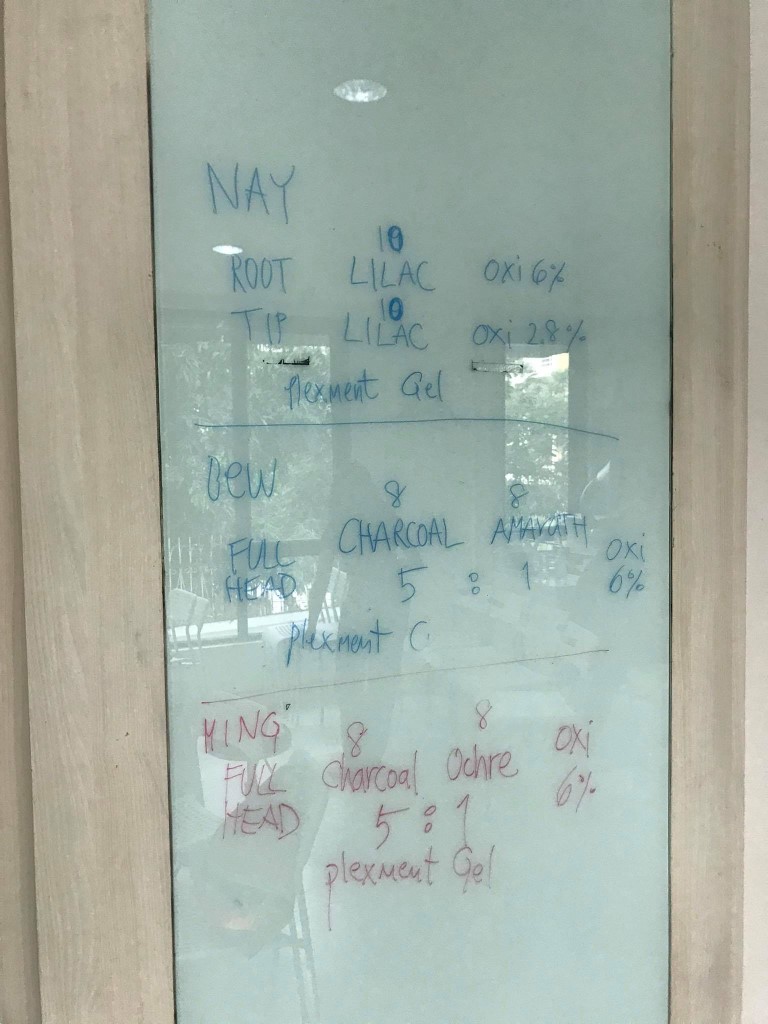 NAY
10 10
ROOT LILAC oxi 6%
TIP LILAC oxi 2.8%
plexment Gel
Dew
8 8
CHARCOAL AMARATH
FULL HEAD 5 : 1 oxi 6%
plexment G
MING
8 8
FULL HEAD Charcoal Ochre oxi 6%
5 : 1
plexment Gel